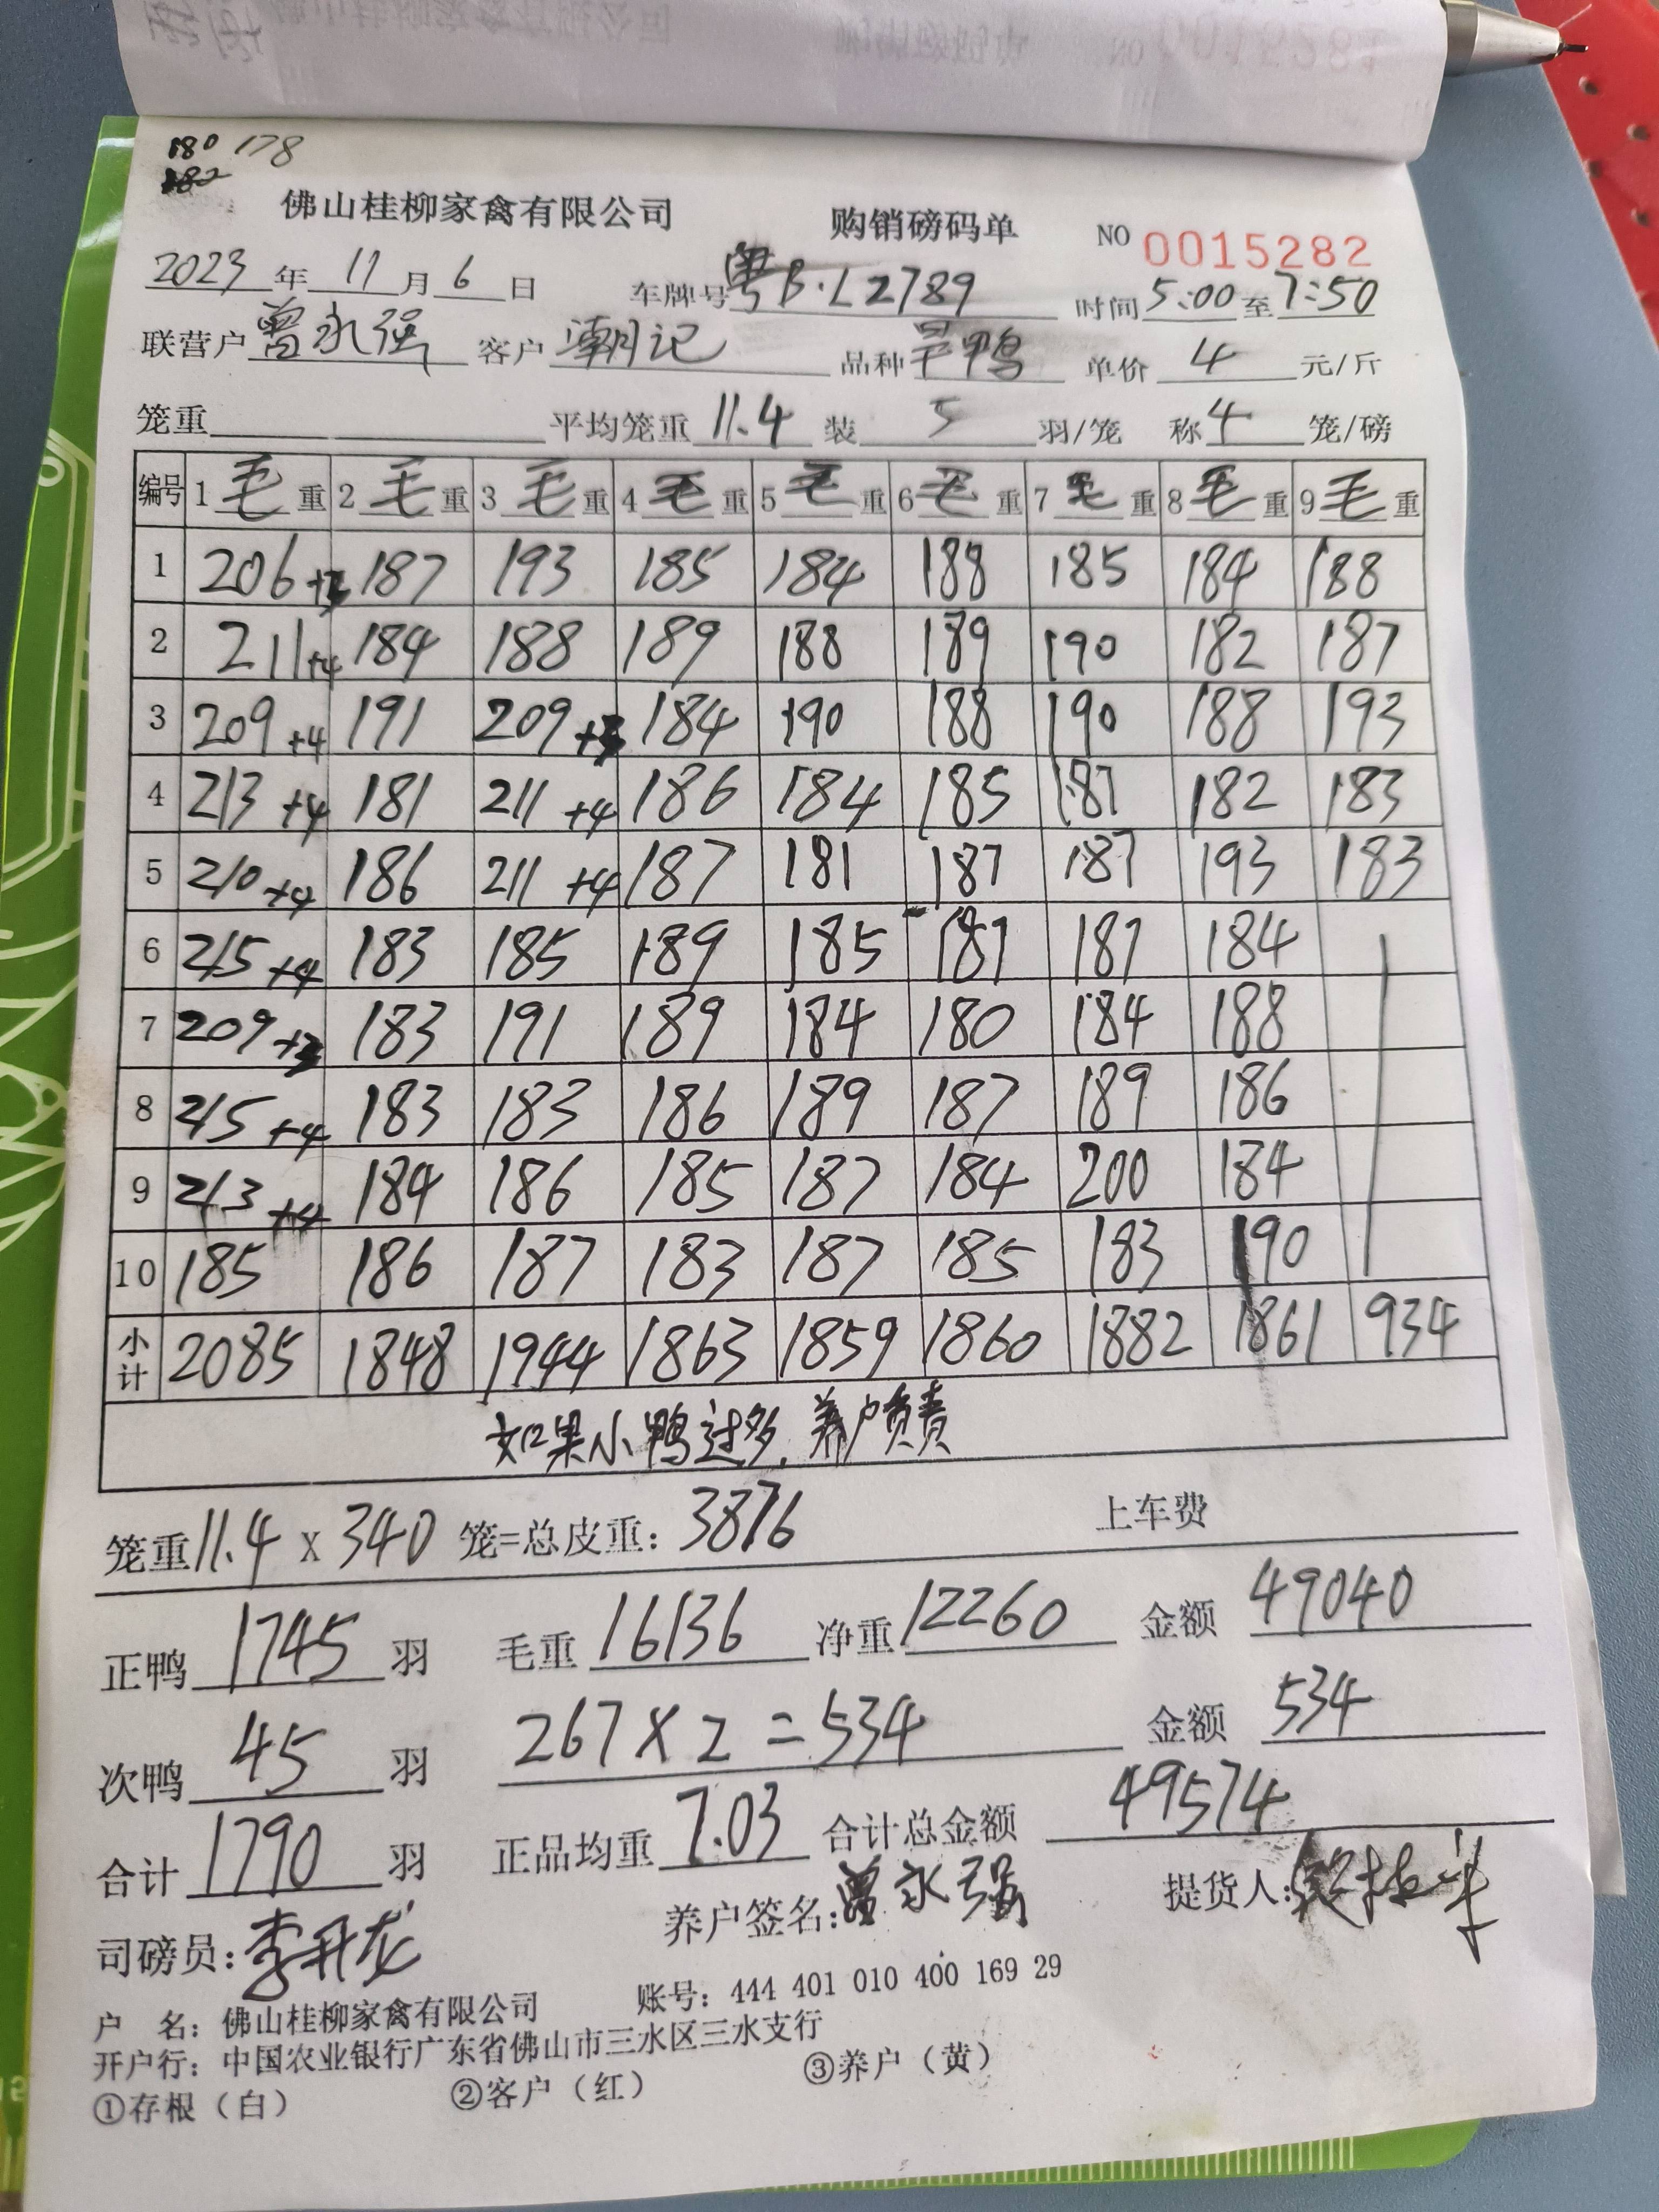 180 178
182
佛山桂柳家禽有限公司 购销磅码单 NO 0015282
2023年11月6日 车牌号粤B·L2789 时间5:00至7:50
联营户曾永强 客户潮记 品种旱鸭 单价4元/斤
笼重 平均笼重11.4 装5羽/笼 称4笼/磅
编号 1毛重 2毛重 3毛重 4毛重 5毛重 6毛重 7毛重 8毛重 9毛重
1 206+3 187 193 185 184 188 185 184 188
2 211+4 184 188 189 188 189 190 182 187
3 209+4 191 209+3 184 190 188 190 188 193
4 213+4 181 211+4 186 184 185 187 182 183
5 210+4 186 211+4 187 181 187 187 193 183
6 215+4 183 185 189 185 187 187 184
7 209+3 183 191 189 184 180 184 188
8 215+4 183 183 186 189 187 189 186
9 213+4 184 186 185 187 184 200 184
10 185 186 187 183 187 185 183 190
小计 2085 1848 1944 1863 1859 1860 1882 1861 934
如果小鸭过多,养户负责
笼重11.4 X 340 笼=总皮重:3876 上车费
正鸭1745羽 毛重16136 净重12260 金额49040
次鸭45羽 267×2=534 金额534
合计1790羽 正品均重7.03 合计总金额49574
司磅员:李开龙 养户签名:曾永强 提货人:
户 名:佛山桂柳家禽有限公司 账号:444 401 010 400 169 29
开户行:中国农业银行广东省佛山市三水区三水支行
①存根(白) ②客户(红) ③养户(黄)